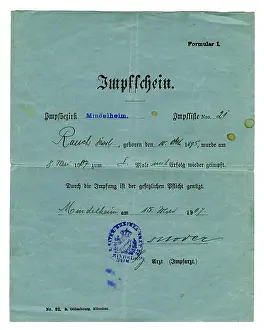 Formular I.
Impfschein.
Impfbezirk Mindelheim. Impfliste Nro. 21
Rauch Karl, geboren den 10. Okt. 1895, wurde am
8. Mai 1907 zum I. Male mit Erfolg wieder geimpft.
Durch die Impfung ist der gesetzlichen Pflicht genügt.
Mindelheim am 15. Mai 1907.
Arzt (Impfarzt).
No. 82. R. Oldenbourg, München.